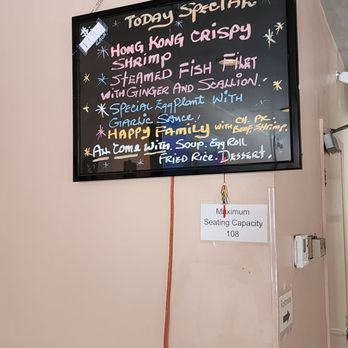 TODAY SPECIAL
HONG KONG CRISPY
SHRIMP
STEAMED FISH FILET
WITH GINGER AND SCALLION.
SPECIAL EGGPLANT WITH
GARLIC SAUCE.
HAPPY FAMILY WITH CH. PK. BEEF, SHRIMP.
ALL COME WITH. SOUP. EGG ROLL
FRIED RICE. DESSERT.
Maximum
Seating Capacity
108